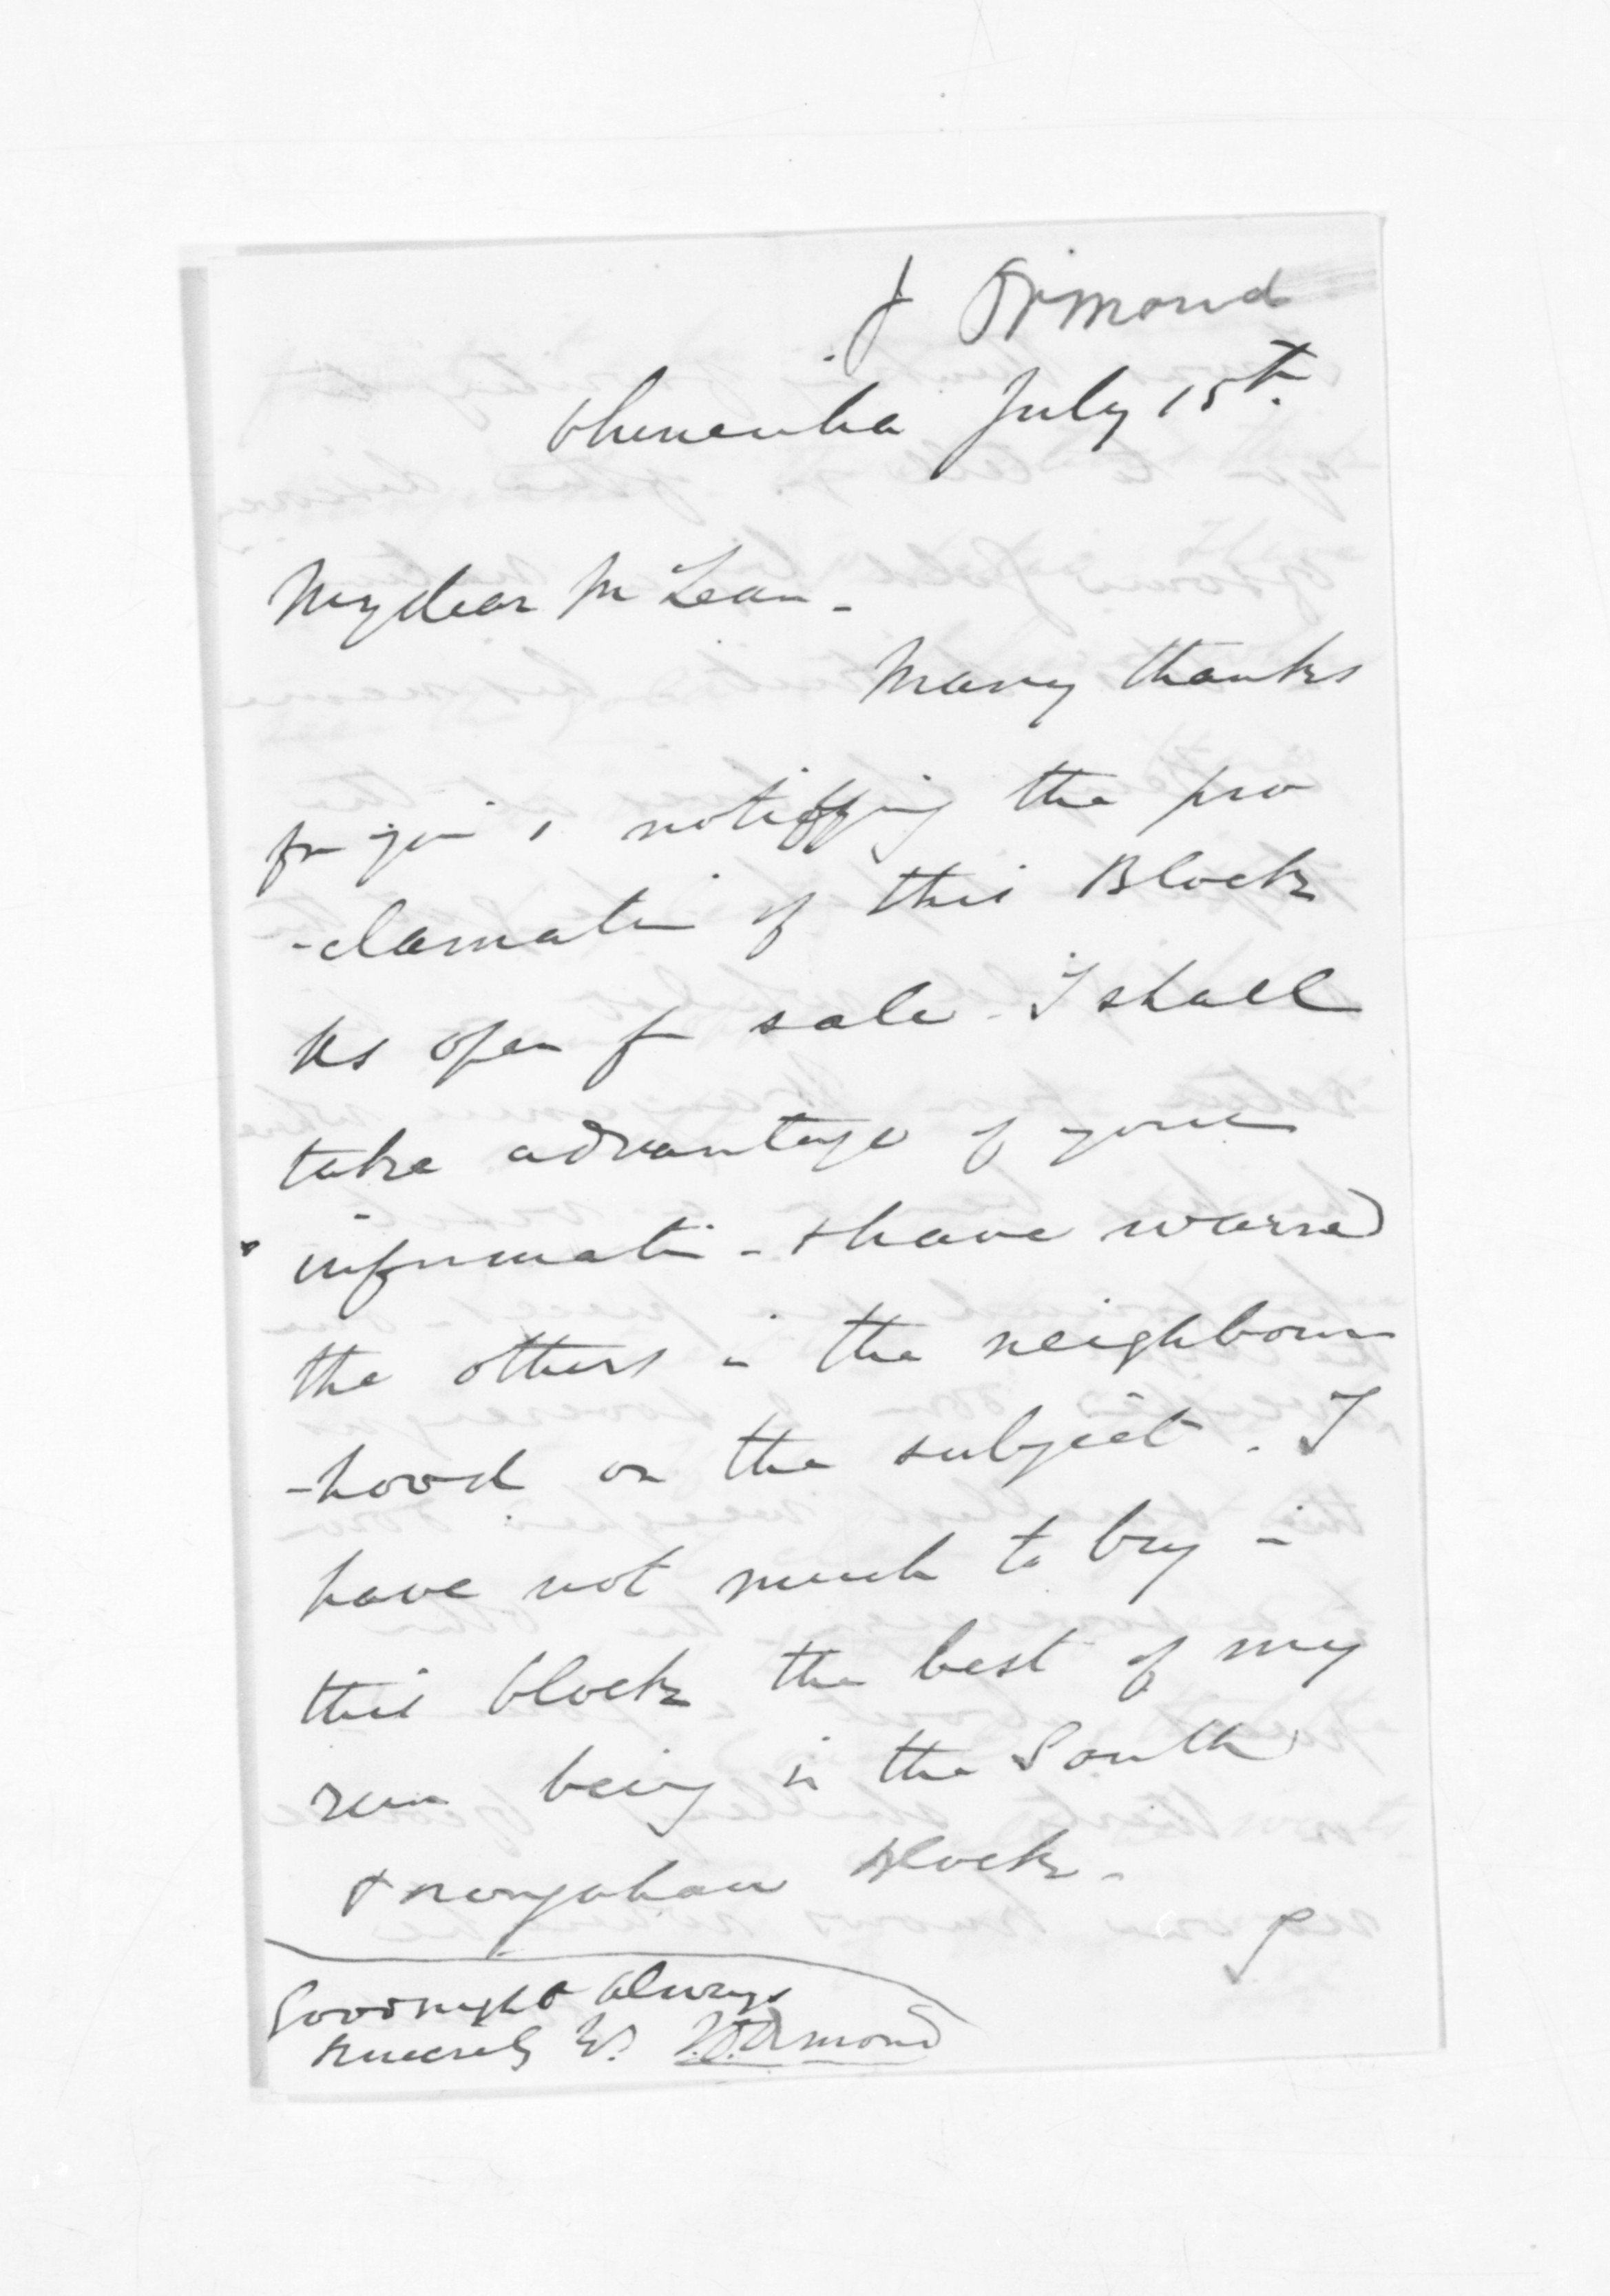 J Ormond
July 15th.
My dear McLean -
Many thanks
for your notifying the pro
-clamation of this Block
as open for sale - I shall
take advantage of your
information - & have warned
the others in the neighbour
-hood on the subject. I
have not much to buy in
this block the best of my
run being in the South
Block -
Goodnight always
sincerely yrs J.D. Ormond